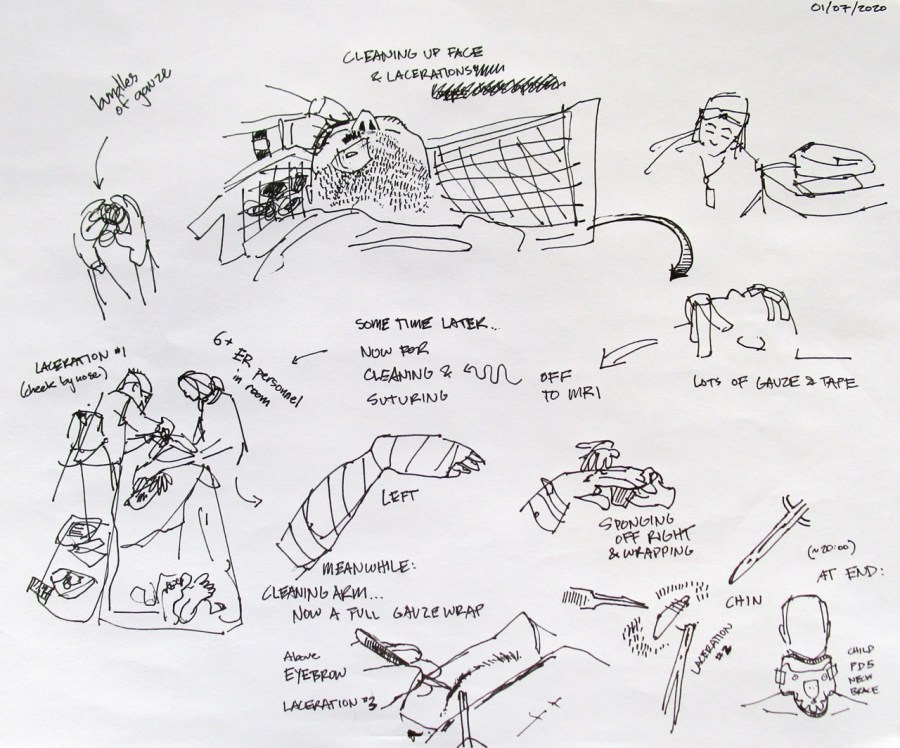 01/07/2020
CLEANING UP FACE
& LACERATIONS
bundles
of gauze
SOME TIME LATER...
NOW FOR
CLEANING &
SUTURING
OFF
TO MRI
LOTS OF GAUZE & TAPE
LACERATION #1
(cheek by nose)
6+
ER personnel
in room
LEFT
SPONGING
OFF RIGHT
& WRAPPING
MEANWHILE:
CLEANING ARM...
NOW A FULL GAUZE WRAP
Above
EYEBROW
LACERATION #3
CHIN
LACERATION
#2
(~20:00)
AT END:
CHILD
NECK
BRACE